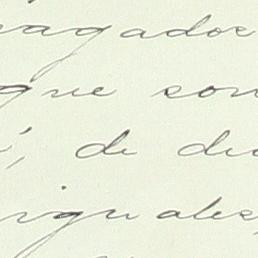 vagador
que son
, de du
iguales,